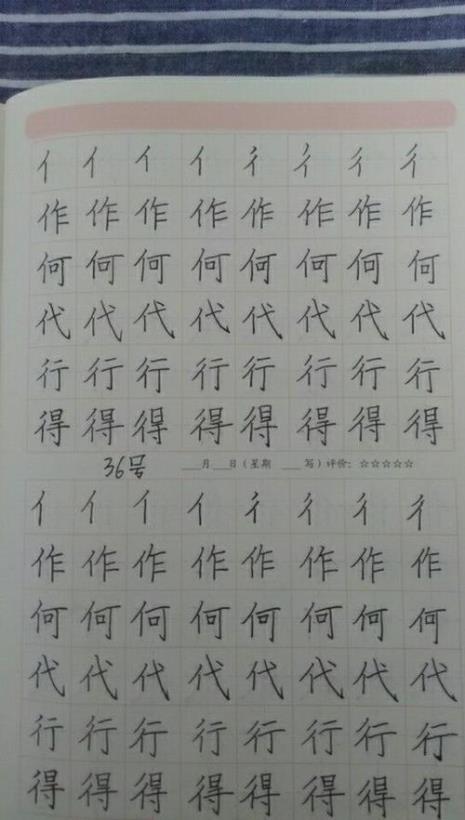 亻亻亻亻彳彳彳彳
作作作作作作作作
何何何何何何何何
代代代代代代代代
行行行行行行行行
得得得得得得得得
36号 __月__日(星期__写)评价:☆☆☆☆☆
亻亻亻亻彳彳彳彳
作作作作作作作作
何何何何何何何何
代代代代代代代代
行行行行行行行行
得得得得得得得得